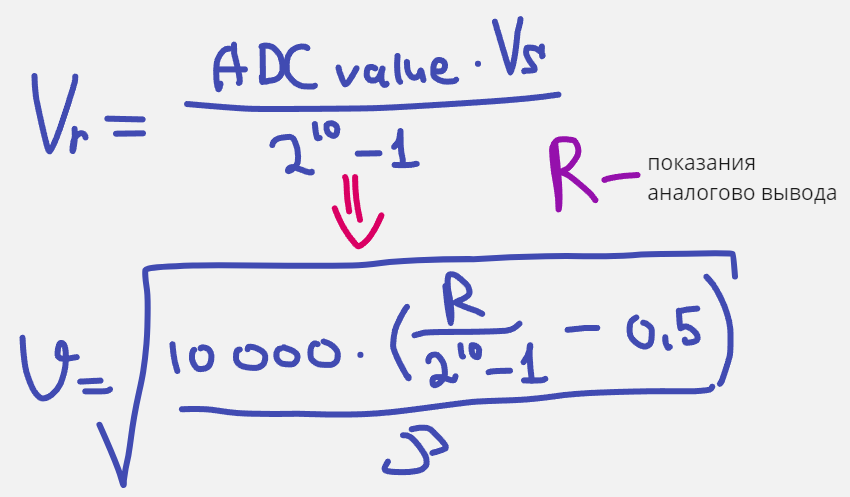 Vr = ADC value · Vs / 2^10 − 1
R — показания
аналогово вывода
v = √(10 000 · (R / 2^10 − 1 − 0,5) / ρ)